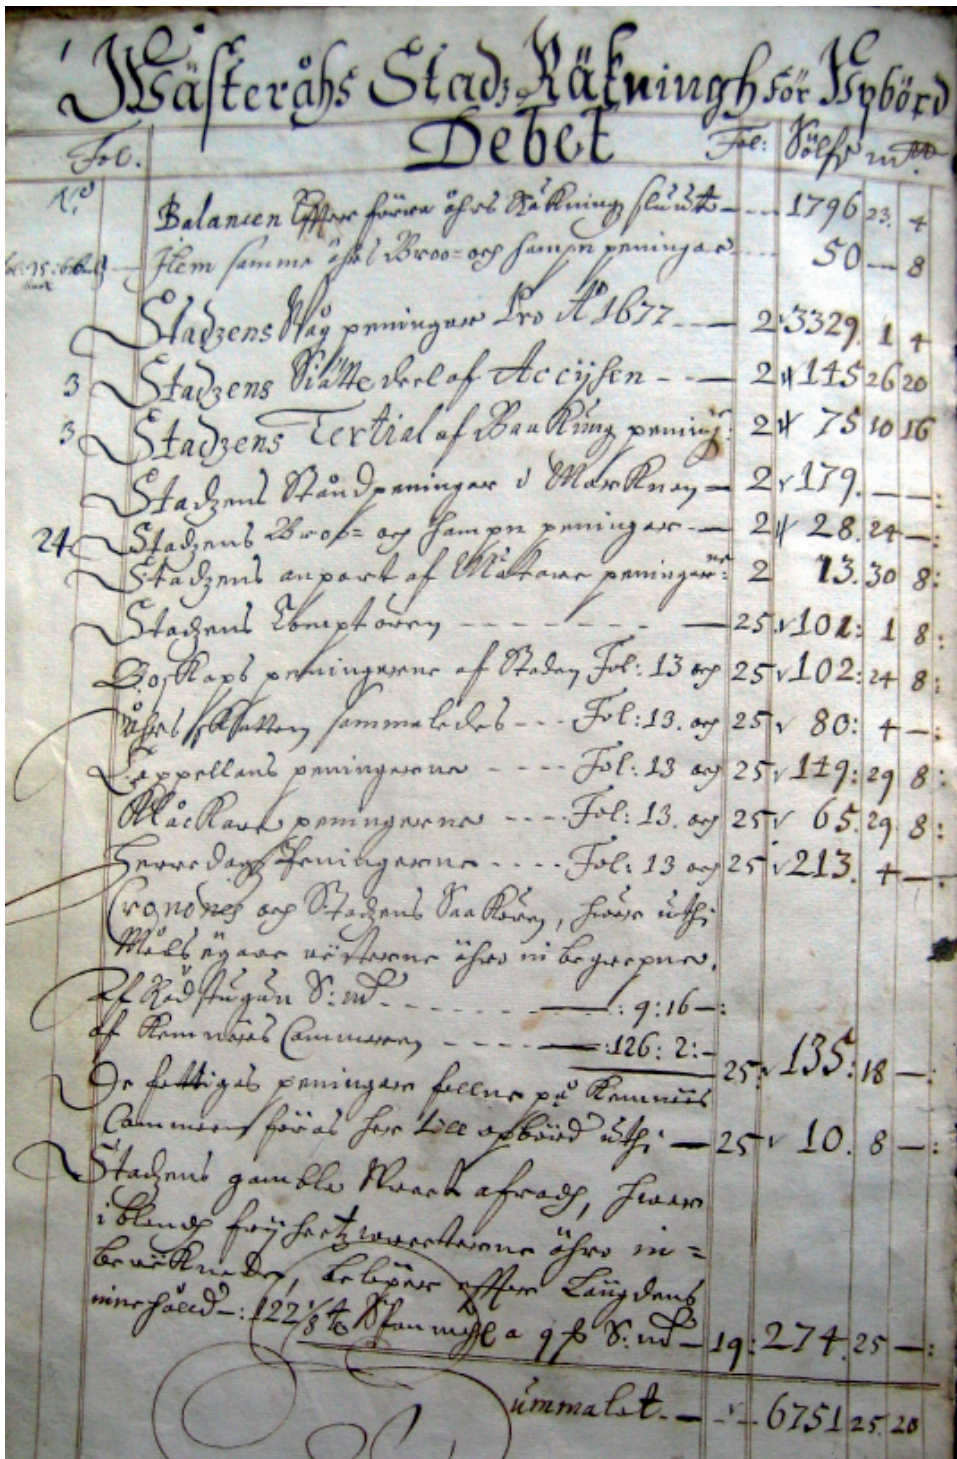 Wästeråhs Stadz Räkningh för Upbörd
Debet
Fol. Fol: Sölfr mt
No Balancen Effter förra åhrs Räkning sluut — 1796 23. 4
Item samma åhrs Broo= och hampn peningar 50 — 8
Stadzens Wåg peningar Pro Ao 1677 — 2 3329. 1 4
3 Stadzens Siätte deel af Accijsen — 2 145 26 20
3 Stadzens Tertial af Baakung pening: 2 75 10 16
Stadzens Ståndpeningar i Marknen — 2 179. — —:
24 Stadzens Broo= och hampn peningar — 2 28. 24 —:
Stadzens anpart af Mätare peningar 2 13. 30 8:
Stadzens Comptoren — 25 101: 1 8:
Boskaps peningerne af Staden Fol: 13 och 25 102: 24 8:
åhrs Skatten sammaledes --- Fol: 13. och 25 80: 4 —:
Cappellans peningerne ---- Fol: 13 och 25 149: 29 8:
Klåckare peningerne ---- Fol: 13. och 25 65. 29. 8:
Herredags Peningerne ---- Fol: 13 och 25 213. 4 —:
Cronones och Stadzens Saakören, hwar uthi
Måls ägare rätterne ähro inbegrepne.
Af Rådstugun S: mt — : 9: 16 —:
af Kemnärs Cammaren — : 126: 2: —
25: 135: 18 —:
De fattigas peningar fallne på Kemnärs
Cammaren föras her till opbörd uthi — 25 10. 8 —:
Stadzens gambla afradh, hwar
iblandh ähro in=
beräknade, belöper effter Längdens
innehåld —: 122 Span a 9 S: mt — 19: 274. 25 —:
Summalat — 6751 25. 20